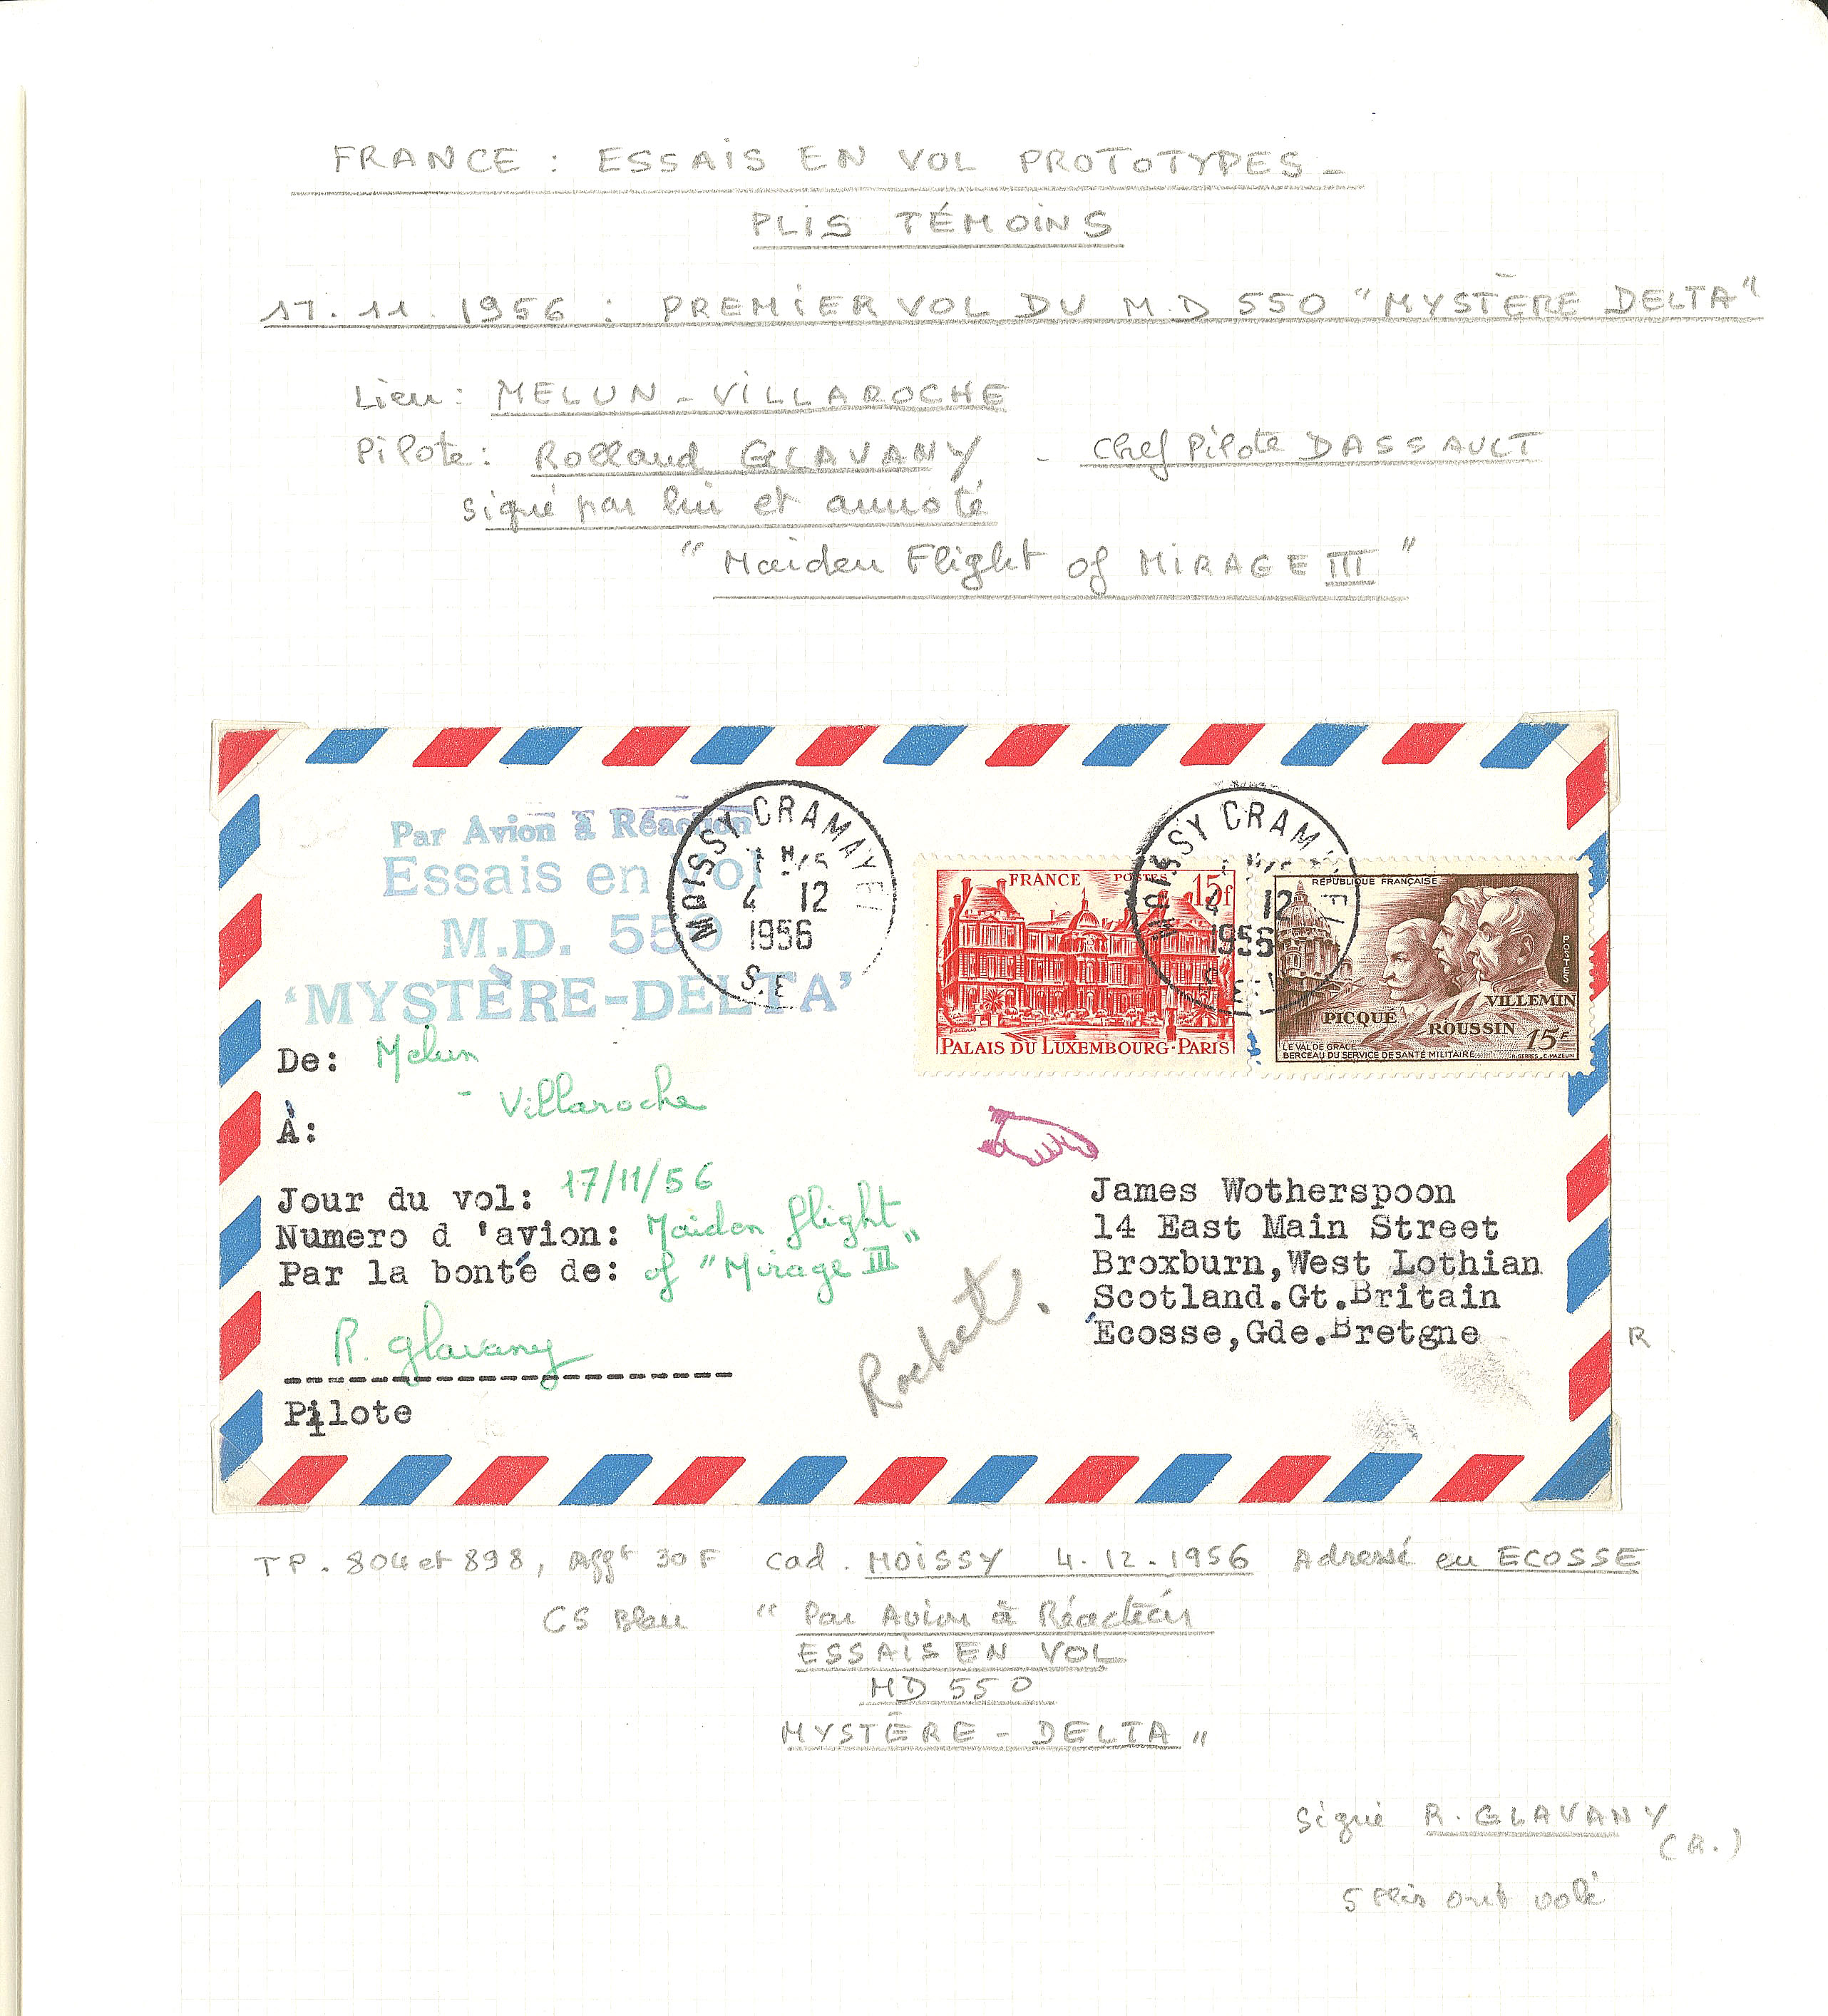 FRANCE : ESSAIS EN VOL PROTOTYPES -
PLIS TÉMOINS
17. 11. 1956 : PREMIER VOL DU M.D 550 "MYSTÈRE DELTA"
Lieu : MELUN - VILLAROCHE
Pilote : Rolland GLAVANY - Chef Pilote DASSAULT
signé par lui et annoté
"Maiden Flight of MIRAGE III"
Par Avion à Réaction
Essais en Vol
M.D. 550
'MYSTÈRE-DELTA'
MOISSY CRAMAYEL
4 12
1956
S.E
MOISSY CRAMAYEL
4 12
1956
FRANCE POSTES 15f
PALAIS DU LUXEMBOURG-PARIS
RÉPUBLIQUE FRANÇAISE
POSTES
VILLEMIN
PICQUÉ
ROUSSIN
15F
LE VAL DE GRACE
BERCEAU DU SERVICE DE SANTÉ MILITAIRE
De: Melun
- Villaroche
À:
Jour du vol: 17/11/56
Numero d'avion: Maiden flight
Par la bonté de: of "Mirage III"
R. Glavany
Pilote
Rocket.
James Wotherspoon
14 East Main Street
Broxburn,West Lothian
Scotland.Gt.Britain
Écosse,Gde.Bretgne
R
TP. 804 et 898, Affgt 30 F cad. MOISSY 4.12.1956 Adressé en ECOSSE
CS Bleu "Par Avion à Réaction
ESSAIS EN VOL
MD 550
MYSTÈRE - DELTA"
signé R. GLAVANY
(R.)
5 Plis ont volé